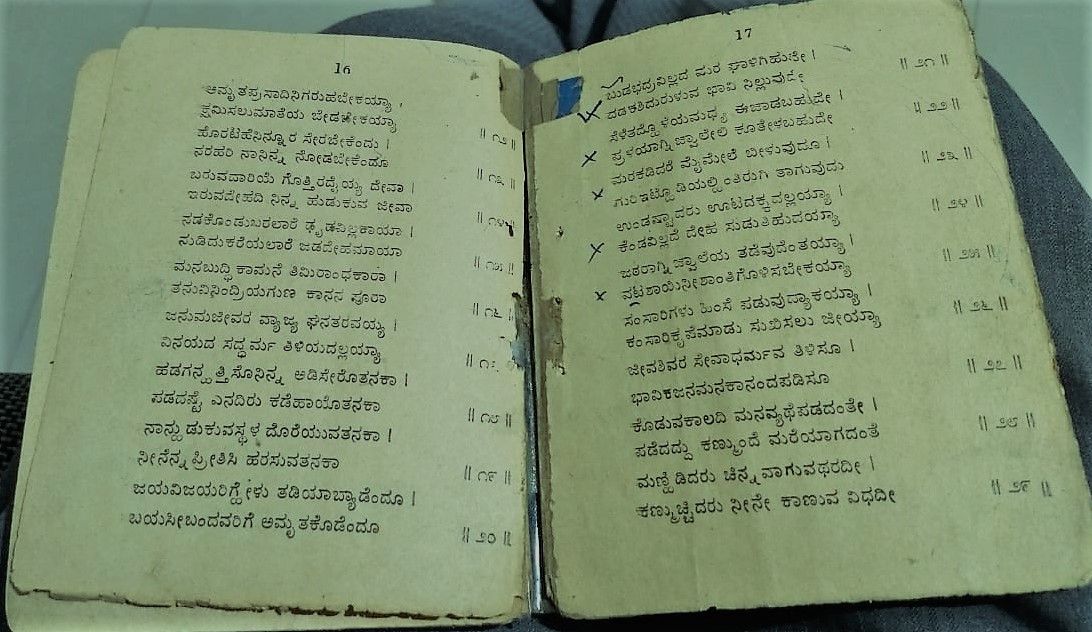 16
ಅಮೃತಪ್ರಸಾದಿನಿಗರುಹಬೇಕಯ್ಯಾ |
ಕ್ಷಮಿಸಲುಮಾತೆಯ ಬೇಡಬೇಕಯ್ಯಾ || ೧೨ ||
ಹೊರಟಿಹೆನಿನ್ನೂರ ಸೇರಬೇಕೆಂದು |
ನರಹರಿ ನಾನಿನ್ನ ನೋಡಬೇಕೆಂದೂ || ೧೩ ||
ಬರುವದಾರಿಯೆ ಗೊತ್ತಿರದೈಯ್ಯ ದೇವಾ |
ಇರುವದೇಹದಿ ನಿನ್ನ ಹುಡುಕುವ ಜೀವಾ || ೧೪ ||
ನಡಕೊಂಡುಬರಲಾರೆ ಧೃಡವಿಲ್ಲಕಾಯಾ |
ನುಡಿದುಕರೆಯಲಾರೆ ಜಡದೇಹಮಾಯಾ || ೧೫ ||
ಮನಬುದ್ಧಿ ಕಾಮನೆ ತಿಮಿರಾಂಧಕಾರಾ |
ತನುವಿನಿಂದ್ರಿಯಗುಣ ಕಾನನ ಪೂರಾ || ೧೬ ||
ಜನುಮಜೀವರ ವ್ಯಾಜ್ಯ ಘನತರವಯ್ಯ |
ವಿನಯದ ಸದ್ಧರ್ಮ ತಿಳಿಯದಲ್ಲಯ್ಯಾ || ೧೭ ||
ಹಡಗನ್ಹತ್ತಿಸೊನಿನ್ನ ಅಡಿಸೇರೋತನಕಾ |
ಪಡದಷ್ಟೆ ಎನದಿರು ಕಡೆಹಾಯೋತನಕಾ || ೧೮ ||
ನಾನ್ಹುಡುಕುವಸ್ಥಳ ದೊರೆಯುವತನಕಾ |
ನೀನೆನ್ನ ಪ್ರೀತಿಸಿ ಹರಸುವತನಕಾ || ೧೯ ||
ಜಯವಿಜಯರಿಗ್ಹೇಳು ತಡಿಯಾಬ್ಯಾಡೆಂದೂ |
ಬಯಸೀಬಂದವರಿಗೆ ಅಮೃತಕೊಡೆಂದೂ || ೨೦ ||
17
ಬುಡಭದ್ರವಿಲ್ಲದ ಮರ ಘಾಳಿಗಿಹುದೇ |
ದಡಕಶಿದುರುಳುವ ಭಾವಿ ನಿಲ್ಲುವುದೇ || ೨೧ ||
ಸೆಳೆತದ್ಹೊಳೆಯಮಧ್ಯ ಈಜಾಡಬಹುದೇ |
ಪ್ರಳಯಾಗ್ನಿಜ್ವಾಲೇಲಿ ಕೂತೇಳಬಹುದೇ || ೨೨ ||
ಮರಕಡಿದರೆ ಮೈಮೇಲೆ ಬೀಳುವುದೂ |
ಗುರಿಇಟ್ಟೊಡಿಯಲ್ಕಿಂತಿರುಗಿ ತಾಗುವುದು || ೨೩ ||
ಉಂಡಷ್ಟಾದರು ಊಟದಕ್ಕದಲ್ಲಯ್ಯಾ |
ಕೆಂಡವಿಲ್ಲದೆ ದೇಹ ಸುಡುತಿಹುದಯ್ಯಾ || ೨೪ ||
ಜಠರಾಗ್ನಿಜ್ವಾಲೆಯ ತಡೆವುದೆಂತಯ್ಯಾ |
ವಟಶಾಯಿನೀಶಾಂತಿಗೊಳಿಸಬೇಕಯ್ಯಾ || ೨೫ ||
ಸಂಸಾರಿಗಳು ಹಿಂಸೆ ಪಡುವುದ್ಯಾಕಯ್ಯಾ |
ಕಂಸಾರಿಕೃಪೆಮಾಡು ಸುಖಿಸಲು ಜೀಯ್ಯಾ || ೨೬ ||
ಜೀವಶಿವರ ಸೇವಾಧರ್ಮವ ತಿಳಿಸೂ |
ಭಾವಿಕಜನಮನಕಾನಂದಪಡಿಸೂ || ೨೭ ||
ಕೊಡುವಕಾಲದಿ ಮನವ್ಯಥೆಪಡದಂತೇ |
ಪಡೆದದ್ದು ಕಣ್ಮುಂದೆ ಮರೆಯಾಗದಂತೆ || ೨೮ ||
ಮಣ್ಹಿಡಿದರು ಚಿನ್ನವಾಗುವಥರದೀ |
ಕಣ್ಮುಚ್ಚಿದರು ನೀನೇ ಕಾಣುವ ವಿಧದೀ || ೨೯ ||